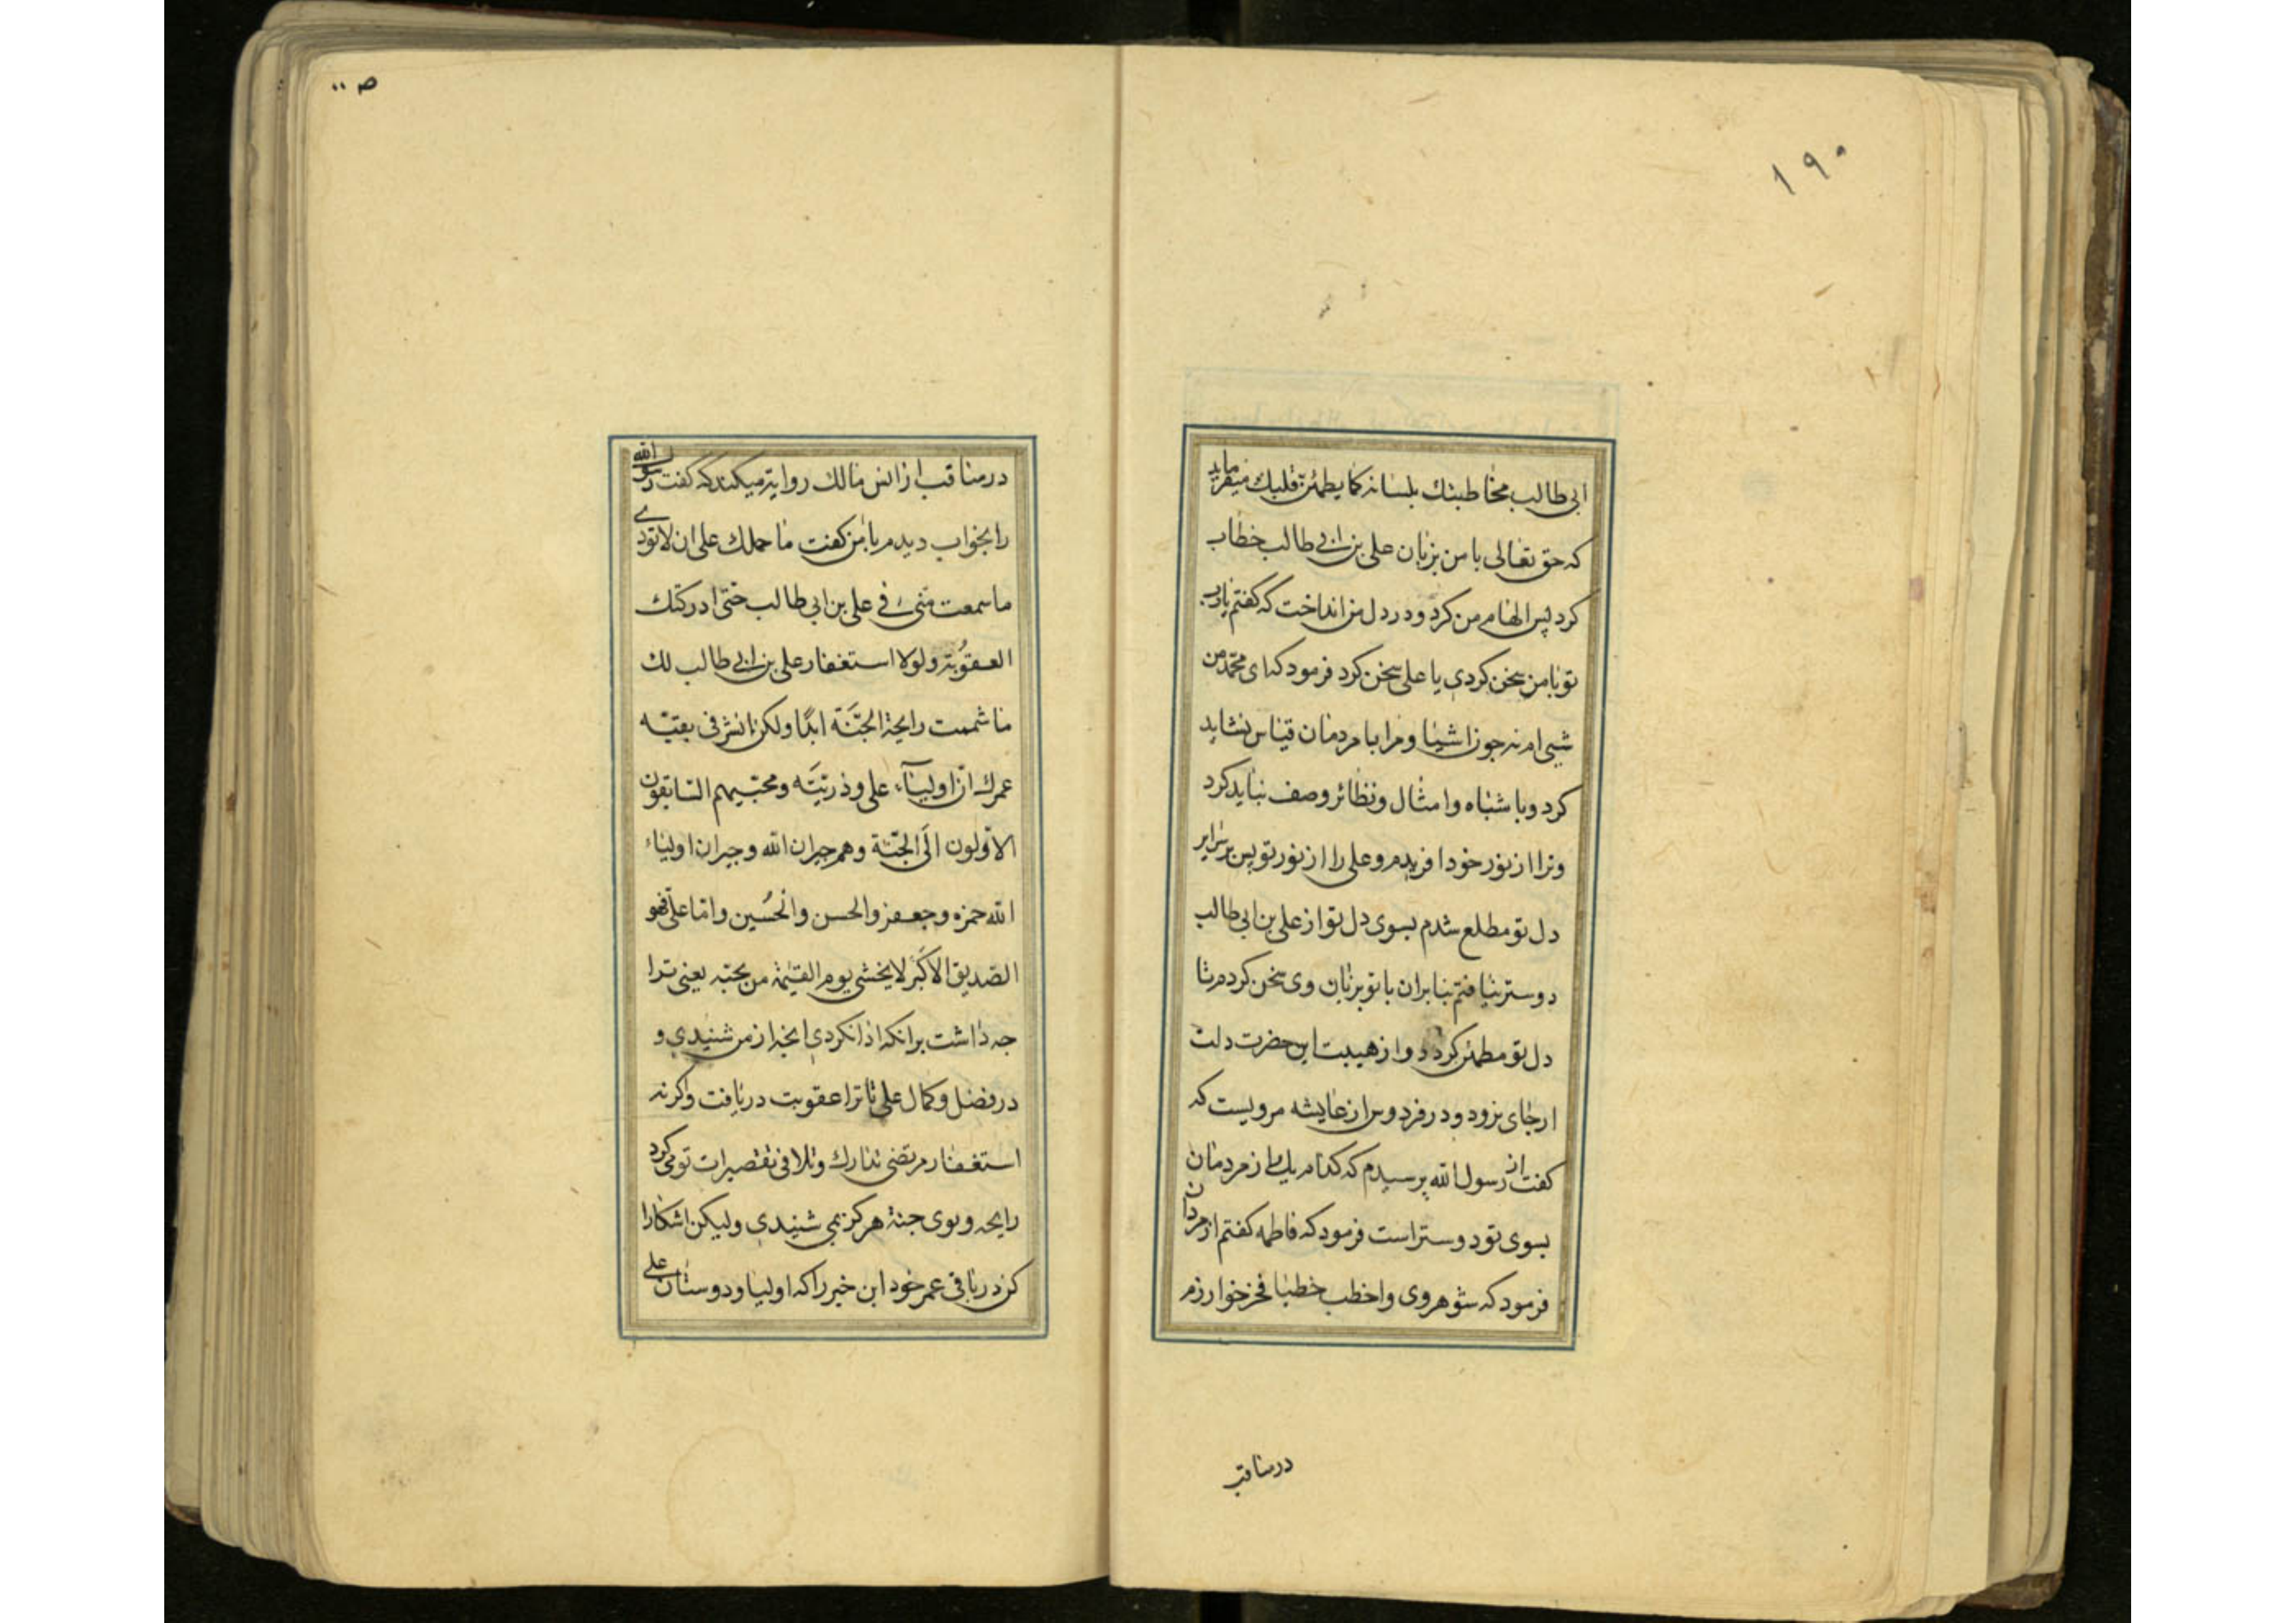 ۱۹۰
ابی طالب مخاطبتك بلسانه كما يطمئن قلبك میفرماید
كه حق تعالی با من بزبان علی بن ابی طالب خطاب
كرد پس الهام من كرد و در دل من انداخت كه گفتم یا رب
تو با من سخن كردی یا علی سخن كرد فرمود كه ای محمد من
شیی ام نه جون اشیا و مرا با مردمان قیاس نشاید
كرد و با شباه و امثال و نظائر وصف نباید كرد
و ترا از نور خود افریدم و علی را از نور تو پس بر سرایر
دل تو مطلع شدم بسوی دل تو از علی بن ابی طالب
دوستر نیافتم بنابران با تو بزبان وی سخن كردم تا
دل تو مطمئن كردد و از هیبت این حضرت دلت
ازجای نرود و در فردوس از عایشه مرویست كه
كفت از رسول الله پرسیدم كه كدام یك از مردمان
بسوی تو دوستر است فرمود كه فاطمه كفتم از مردان
فرمود كه شوهر وی و اخطب خطبا فخر خوارزم
در مناقب
ص ۱۱
در مناقب از انس مالك روایة میكند كه گفت رسول الله
را بخواب دیدم با من كفت ما حملك علی ان لا تودی
ما سمعت منی فی علی بن ابی طالب حتی ادركتك
العقوبة و لولا استغفار علی بن ابی طالب لك
ما شممت رایحة الجنة ابدًا و لكن انشر فی بقیة
عمرك ان اولیاء علی و ذریته و محبیهم السابقون
الاولون الی الجنة و هم جیران الله و جیران اولیاء
الله حمزه و جعفر و الحسن و الحسین و اما علی فهو
الصدیق الاكبر لا یخشی یوم القیمة من یحبه یعنی ترا
جه داشت برانكه ادا نكردی انجه از من شنیدی و
در فضل و كمال علی تا ترا عقوبت دریافت و اكر نه
استغفار مرتضی تدارك و تلافی تقصیرات تو می كرد
رایحه و بوی جنة هركز نمی شنیدی و لیكن اشكارا
كن در باقی عمر خود این خبر را كه اولیا و دوستان علی